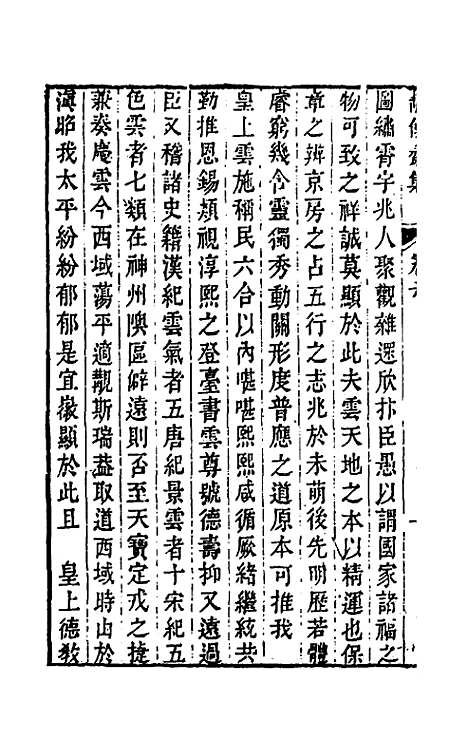 圖繡霄字兆人聚觀雜遝欣抃臣愚以謂國家諸福之
物可致之祥誠莫顯於此夫雲天地之本以精運也保
章之辨京房之占五行之志兆於未萌後先明歷若體
睿窮幾含靈獨秀動關形度普應之道原本可推我
皇上雲施稱民六合以內喏喏熙熙咸循厥緒繼統共
勤推恩錫類視淳熙之登臺書雲尊號德壽抑又遠過
臣又稽諸史籍漢紀雲氣者五唐紀景雲者十宋紀五
色雲者七類在神州隩區僻遠則否至天寶定戎之捷
兼奏慶雲今西域蕩平適覯斯瑞益取道西域時由於
滇昭我太平紛紛郁郁是宜徵顯於此且 皇上德教